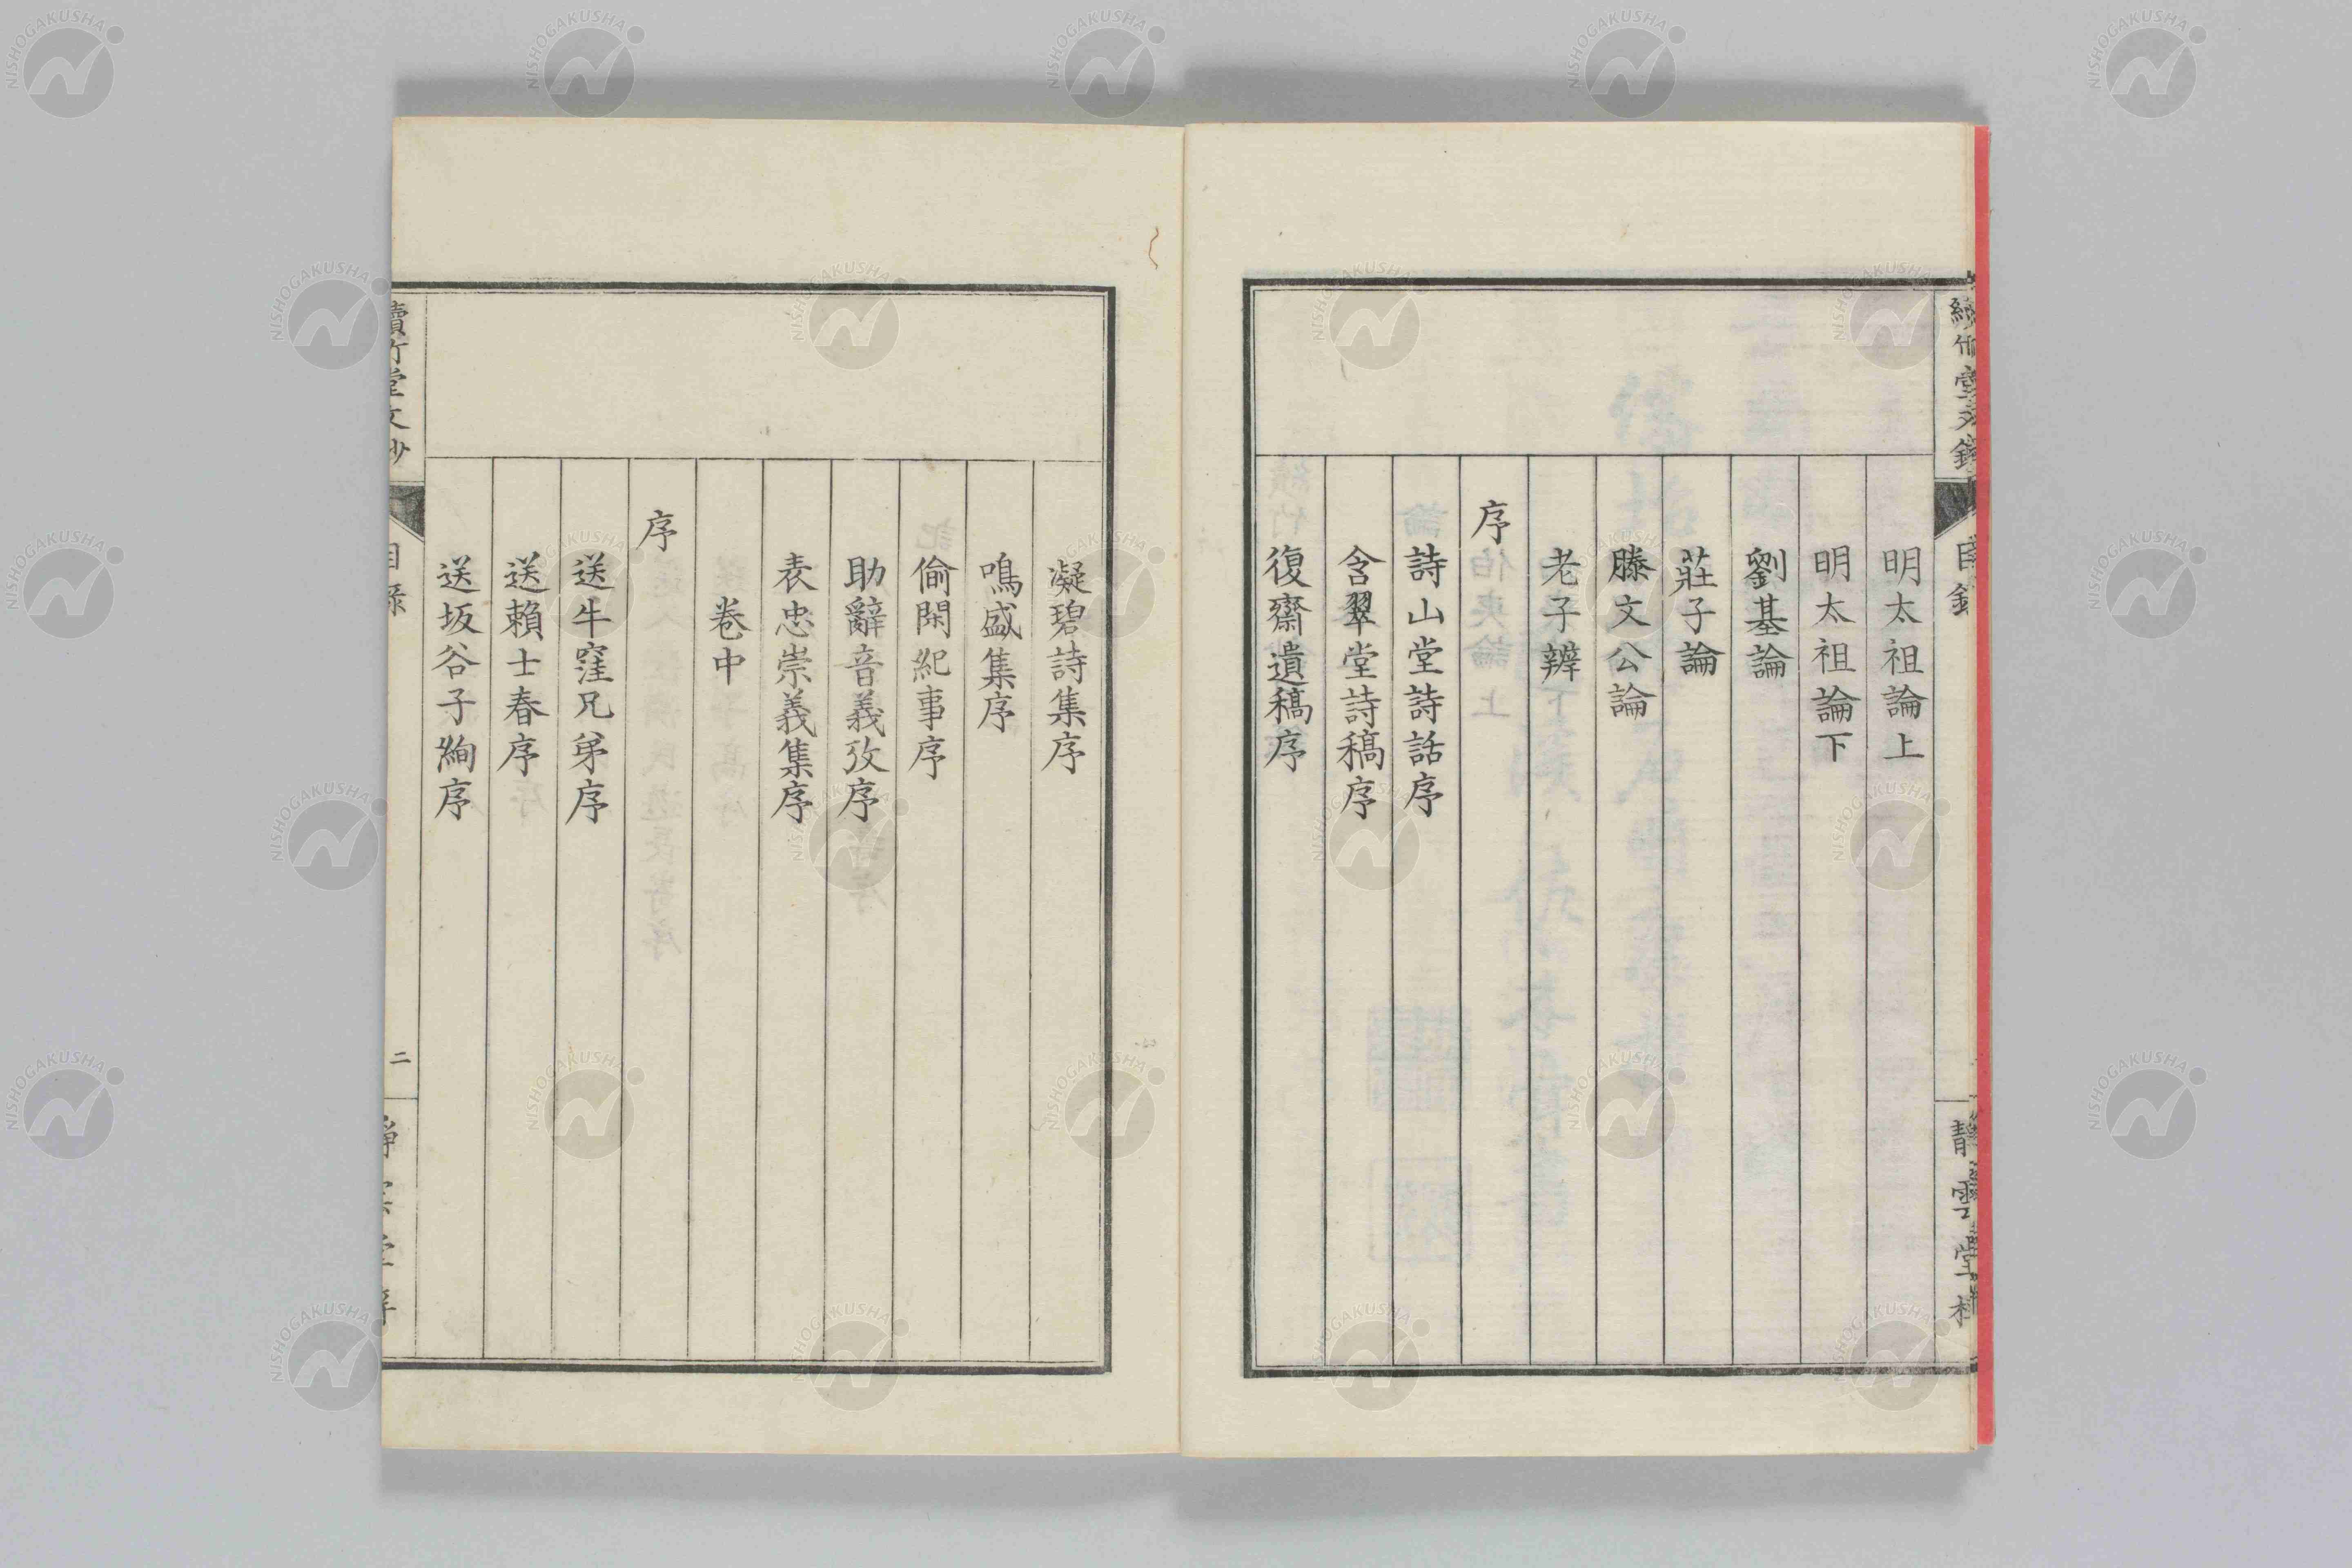 明太祖論上
明太祖論下
劉基論
莊子論
滕文公論
老子辨
序
詩山堂詩話序
含翠堂詩稿序
復齋遺稿序
凝碧詩集序
鳴盛集序
偷閑紀事序
助辭音義攷序
表忠崇義集序
卷中
序
送牛窪兄弟序
送賴士春序
送坂谷子絢序
目錄
二
NISHOGAKUSHA